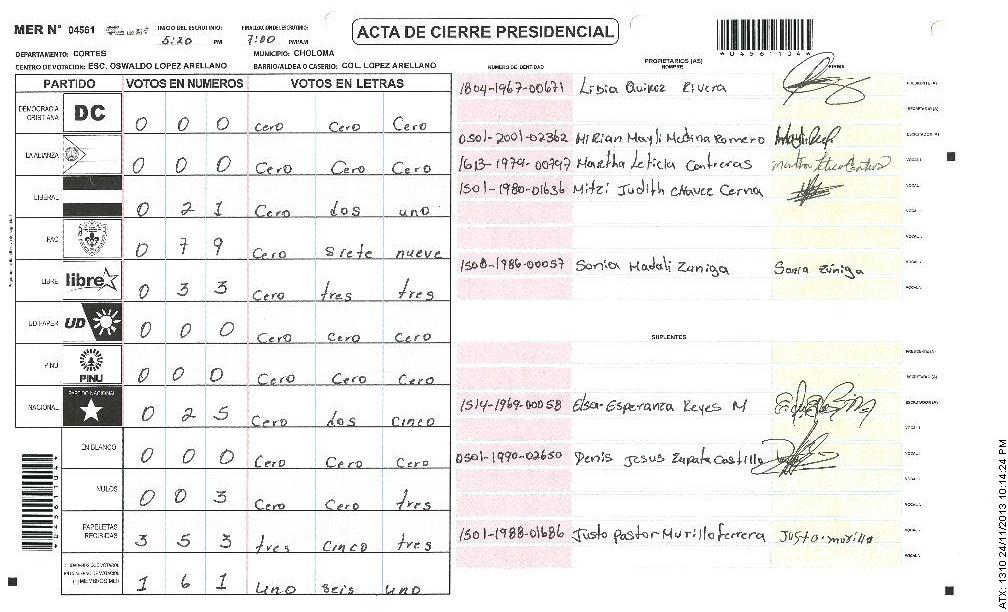 MER N° 04561 INICIO DEL ESCRUTINIO: 5:20 PM FINALIZACION ESCRUTINIO: 7:00 PM/AM
ACTA DE CIERRE PRESIDENCIAL
DEPARTAMENTO: CORTES MUNICIPIO: CHOLOMA
CENTRO DE VOTACION: ESC. OSWALDO LOPEZ ARELLANO BARRIO/ALDEA O CASERIO: COL. LOPEZ ARELLANO
PARTIDO VOTOS EN NUMEROS VOTOS EN LETRAS
DEMOCRACIA CRISTIANA DC 0 0 0 Cero Cero Cero
LA ALIANZA 0 0 0 Cero Cero Cero
LIBERAL 0 2 1 Cero dos uno
PAC 0 7 9 Cero siete nueve
LIBRE libre 0 3 3 Cero tres tres
UD-FAPER UD 0 0 0 Cero Cero Cero
PINU PINU 0 0 0 Cero Cero Cero
NACIONAL PARTIDO NACIONAL 0 2 5 Cero dos Cinco
EN BLANCO 0 0 0 Cero Cero Cero
NULOS 0 0 3 Cero Cero tres
PAPELETAS RECIBIDAS 3 5 3 tres Cinco tres
1 6 1 uno seis uno
NUMERO DE IDENTIDAD PROPIETARIOS (AS) NOMBRE FIRMA
1804-1967-00671 Lidia Quiroz Rivera PRESIDENTE (A)
SECRETARIO (A)
0501-2001-02362 Mirian Mayli Medina Romero ESCRUTADOR (A)
1613-1979-00797 Martha Leticia Contreras VOCAL I
1501-1980-01636 Mitzi Judith Chavez Cerna
1508-1986-00057 Sonia Madali Zuniga Sonia Zúniga
SUPLENTES
PRESIDENTE (A)
SECRETARIO (A)
1514-1969-00058 Elsa Esperanza Reyes M ESCRUTADOR (A)
0501-1990-02650 Denis Jesus Zapata Castillo
1501-1988-01686 Justo Pastor Murillo ferrera Justo murillo
ATX: 1310 24/11/2013 10:14:24 PM